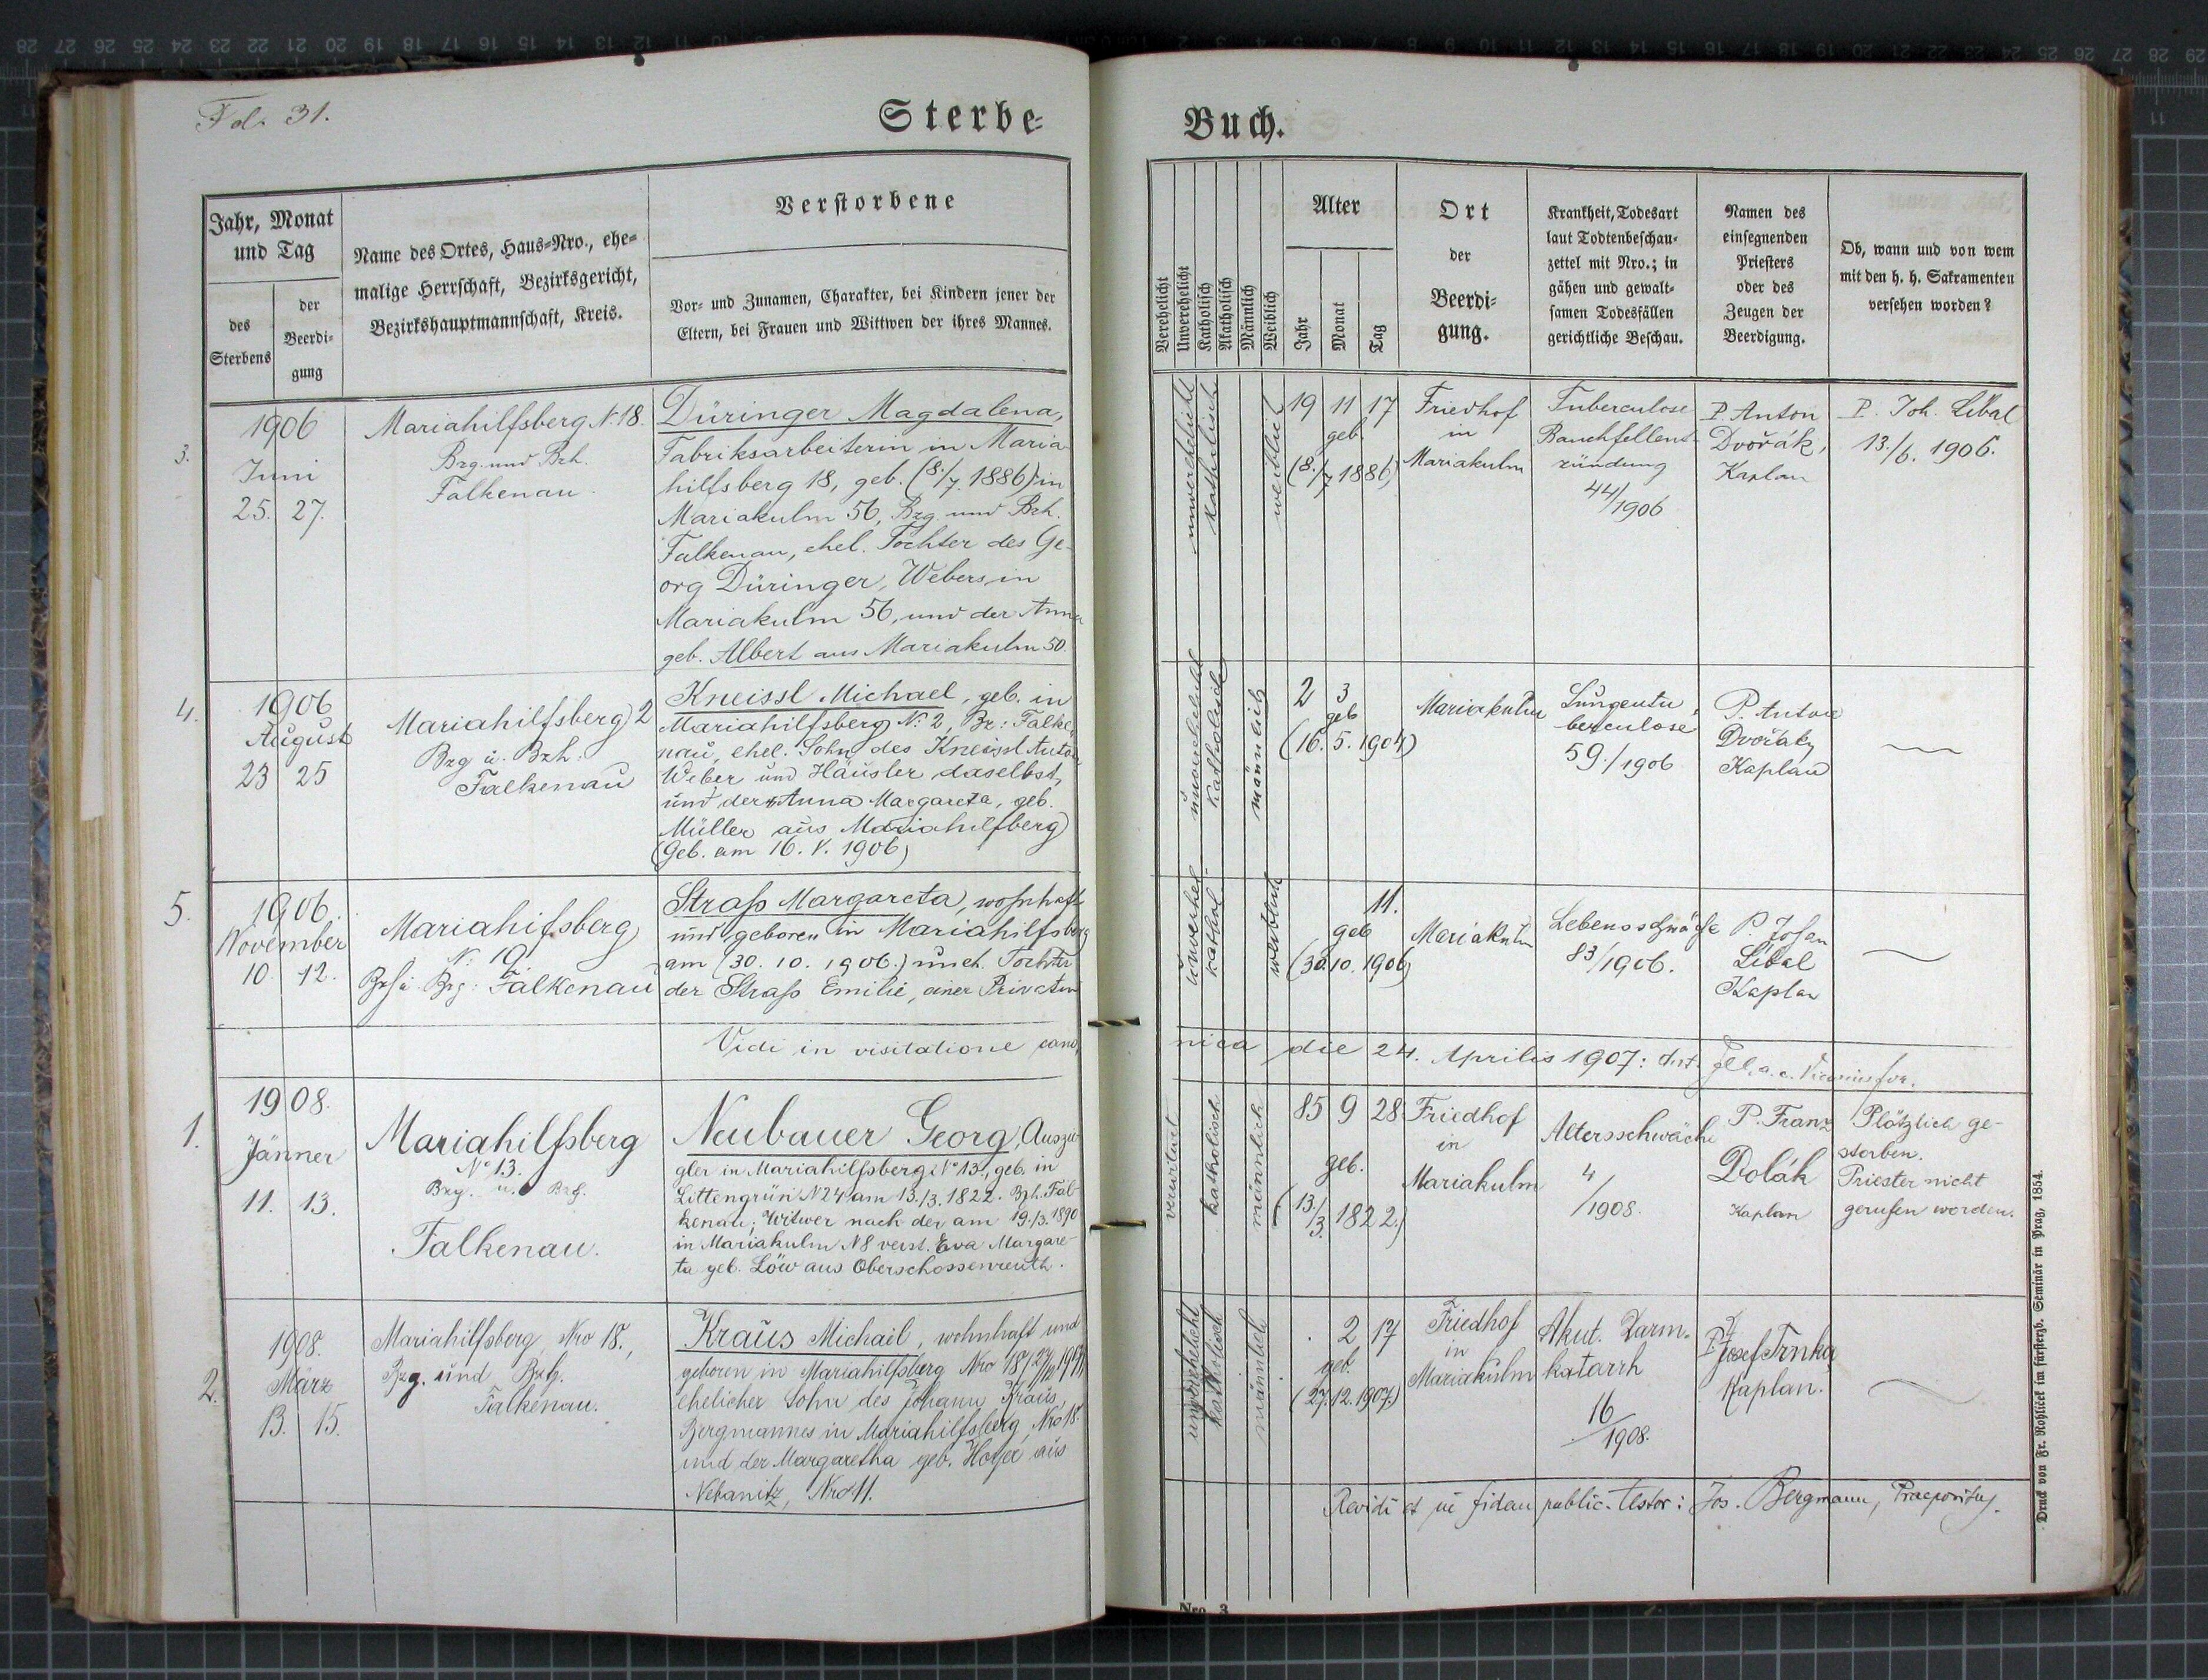 Fol. 31.
Sterbe-
Buch.
Jahr, Monat
und Tag
des
Sterbens
der
Beerdi-
gung
Name des Ortes, Haus-Nro., ehe-
malige Herrschaft, Bezirksgericht,
Bezirkshauptmannschaft, Kreis.
Verstorbene
Vor- und Zunamen, Charakter, bei Kindern jener der
Eltern, bei Frauen und Wittwen der ihres Mannes.
Verehelicht
Unverehelicht
Katholisch
Akatholisch
Männlich
Weiblich
Alter
Jahr
Monat
Tag
Ort
der
Beerdi-
gung.
Krankheit, Todesart
laut Todtenbeschau-
zettel mit Nro.; in
gähen und gewalt-
samen Todesfällen
gerichtliche Beschau.
Namen des
einsegnenden
Priesters
oder des
Zeugen der
Beerdigung.
Ob, wann und von wem
mit den h. h. Sakramenten
versehen worden?
3.
1906
Juni
25. 27.
Mariahilfsberg N. 18.
Bzg. und Bzh.
Falkenau.
Düringer Magdalena,
Fabriksarbeiterin in Maria-
hilfsberg 18, geb. (8./7. 1886) in
Mariakulm 56, Bzg. und Bzh.
Falkenau, ehel. Tochter des Ge-
org Düringer, Webers in
Mariakulm 56, und der Anna
geb. Albert aus Mariakulm 50.
unverehelicht
katholisch
weiblich
19 11 17
geb.
(8./7 1886)
Friedhof
in
Mariakulm
Tuberculose
Bauchfellent-
zündung
44/1906
P. Anton
Dvořák,
Kaplan
P. Joh. Libal
13./6. 1906.
4.
1906
August
23 25
Mariahilfsberg 2
Bzg u. Bzh.
Falkenau
Kneissl Michael, geb. in
Mariahilfsberg N: 2, Bz: Falke-
nau, ehel. Sohn des Kneissl Anton
Weber und Häusler daselbst,
und der Anna Margareta, geb.
Müller aus Mariahilfberg
(Geb. am 16. V. 1906)
unverehelicht
katholisch
männlich
2 3
geb
(16. 5. 1904)
Mariakulm
Lungentu-
berculose
59./1906
P. Anton
Dvořák
Kaplan
5.
1906.
November
10. 12.
Mariahifsberg
N: 19
Bzh u Bzg: Falkenau
Straß Margareta, wohnhaft
und geboren in Mariahilfsberg
am (30. 10. 1906.) uneh. Tochter
der Straß Emilie, einer Privatin
unverhel.
kathol.
weiblich
11.
geb
(30.10. 1906)
Mariakulm
Lebensschwäche
83/1906.
P. Johan
Libal
Kaplan
Vidi in visitatione cano-
nica die 24. Aprilis 1907:
1.
1908.
Jänner
11. 13.
Mariahilfsberg
No 13.
Bzg. u. Bzh.
Falkenau.
Neubauer Georg, Auszü-
gler in Mariahilfsberg No 13., geb. in
Littengrün N 24 am 13./3. 1822. Bzh. Fal-
kenau; Witwer nach der am 19./3. 1890
in Mariakulm N 8 verst. Eva Margare-
ta geb. Löw aus Oberschossenreuth.
verwitwet
katholisch
männlich
85 9 28
geb.
(13./3. 1822.)
Friedhof
in
Mariakulm
Altersschwäche
4
/1908.
P. Franz
Dolák
Kaplan
Plötzlich ge-
storben.
Priester nicht
gerufen worden.
2.
1908.
März
13. 15.
Mariahilfsberg, Nro 18.,
Bzg. und Bzh.
Falkenau.
Kraus Michail, wohnhaft und
geboren in Mariahilfsberg Nro 18,
ehelicher Sohn des Johann Kraus,
Bergmannes in Mariahilfsberg, Nro 18.
und der Margaretha geb. Hoyer aus
Nebanitz, Nro 11.
unverehelicht
katholisch
männlich
. 2 17
geb.
(27.12.1907.)
Friedhof
in
Mariakulm
Akut. Darm-
katarrh
16
/1908.
P. Josef Trnka
Kaplan.
Revidi et in fidem public. testor: Jos. Bergmann, Praepositus.
Nro. 3
Druck von Fr. Rohlicek im fürsterzb. Seminär in Prag, 1854.